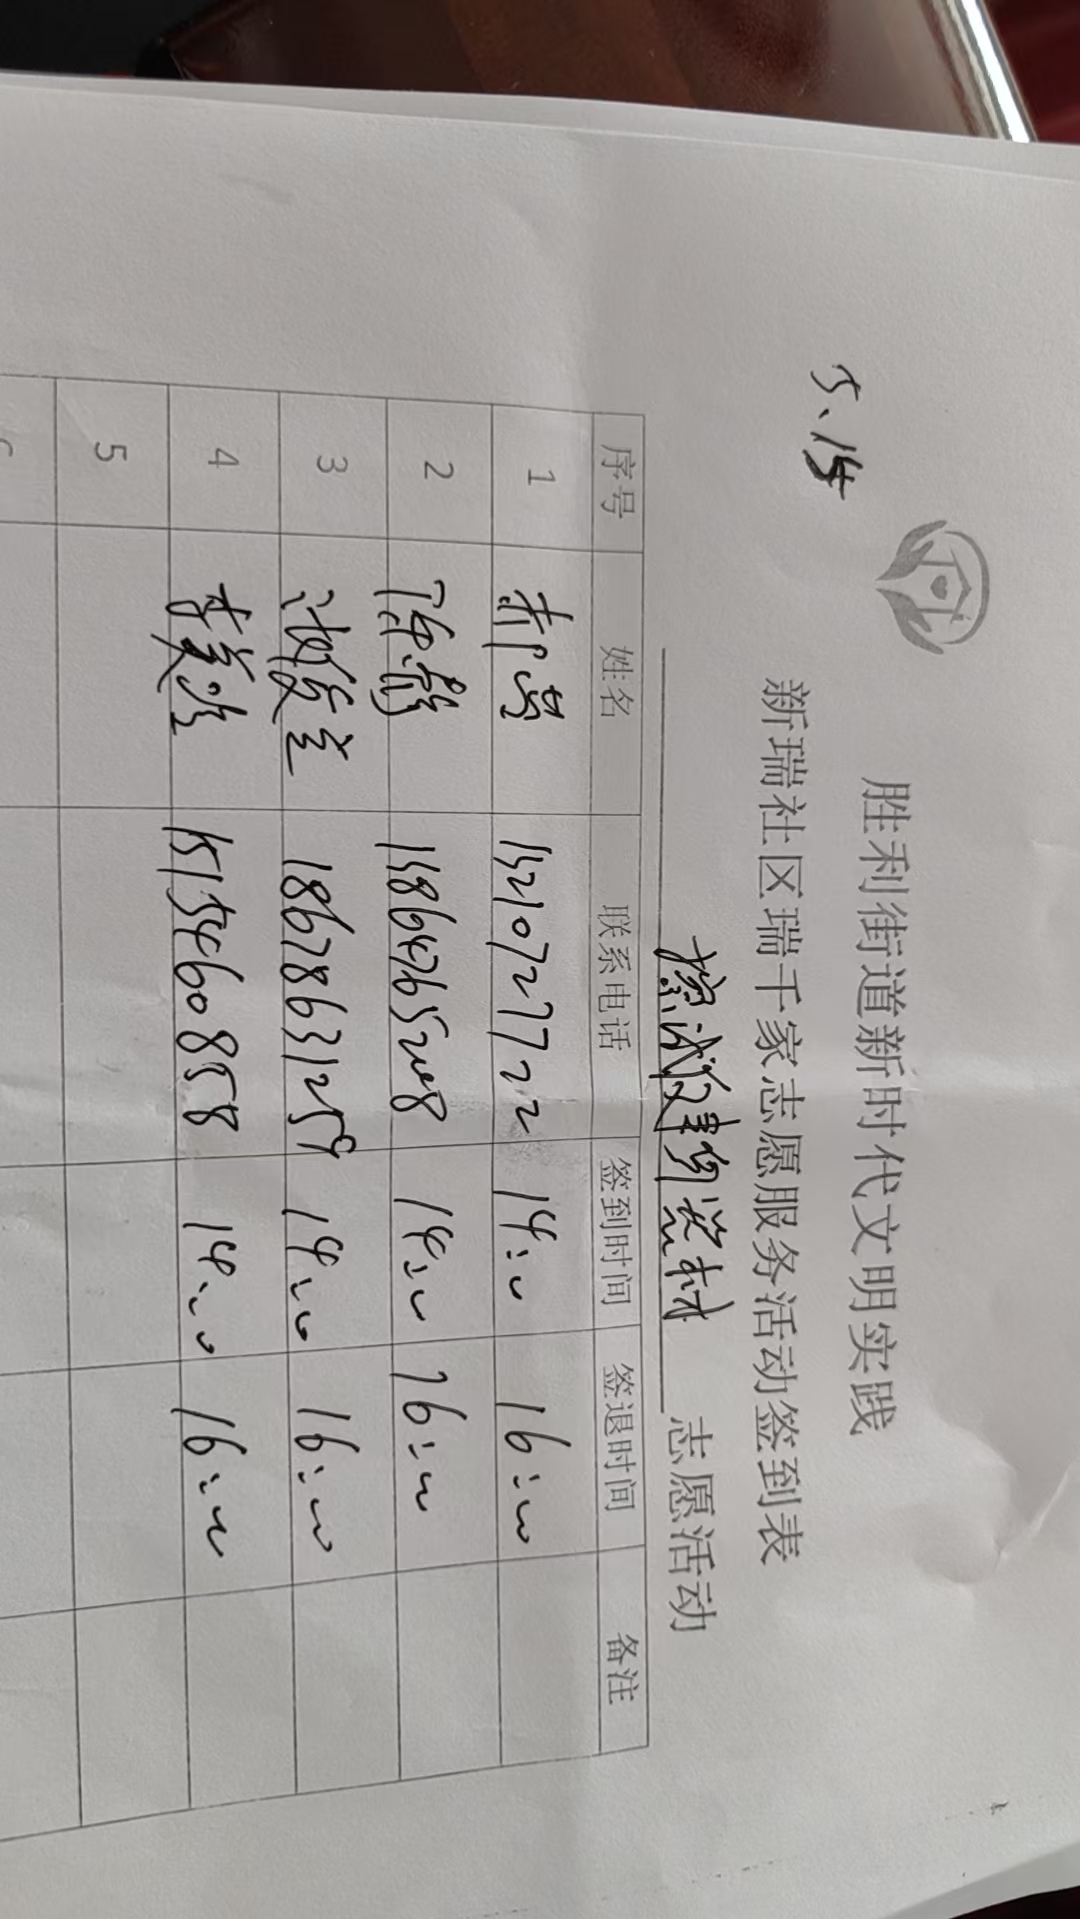 5.15
胜利街道新时代文明实践
新瑞社区瑞千家志愿服务活动签到表
擦拭健身器材 志愿活动
序号 姓名 联系电话 签到时间 签退时间 备注
1 15210727722 14:00 16:00
2 陈彩 15864765208 14:00 16:00
3 18678631259 14:00 16:00
4 李美玲 15154608558 14:00 16:00
5